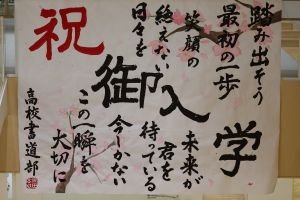 踏み出そう
最初の一歩
笑顔の
絶えない
日々を
祝
御入学
未来が
君を
待っている
今しかない
この一瞬を
大切に
高校書道部